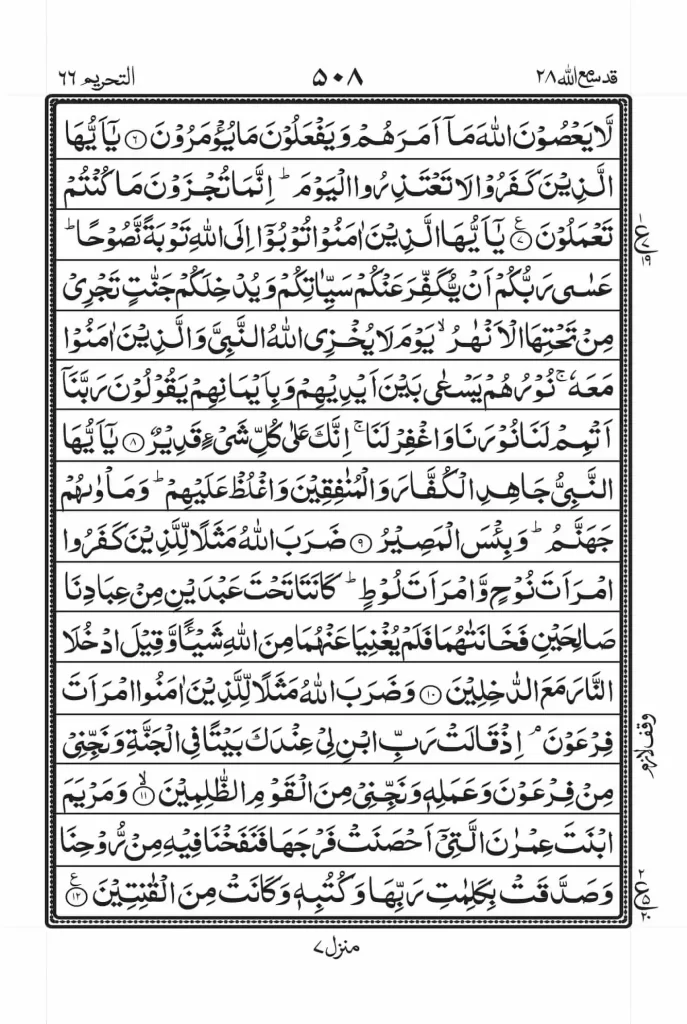 قد سمع الله ٢٨
۵۰۸
التحريم ٦٦
لَّا يَعْصُوْنَ اللّٰهَ مَاۤ اَمَرَهُمْ وَيَفْعَلُوْنَ مَا يُؤْمَرُوْنَ ۟۶ يٰۤاَيُّهَا
الَّذِيْنَ كَفَرُوْا لَا تَعْتَذِرُوا الْيَوْمَ ؕ اِنَّمَا تُجْزَوْنَ مَا كُنْتُمْ
تَعْمَلُوْنَ ۟۷ع يٰۤاَيُّهَا الَّذِيْنَ اٰمَنُوْا تُوْبُوْۤا اِلَى اللّٰهِ تَوْبَةً نَّصُوْحًا ؕ
عَسٰى رَبُّكُمْ اَنْ يُّكَفِّرَ عَنْكُمْ سَيِّاٰتِكُمْ وَيُدْخِلَكُمْ جَنّٰتٍ تَجْرِيْ
مِنْ تَحْتِهَا الْاَنْهٰرُ ۙ يَوْمَ لَا يُخْزِي اللّٰهُ النَّبِيَّ وَالَّذِيْنَ اٰمَنُوْا
مَعَهٗ ۚ نُوْرُهُمْ يَسْعٰى بَيْنَ اَيْدِيْهِمْ وَبِاَيْمَانِهِمْ يَقُوْلُوْنَ رَبَّنَاۤ
اَتْمِمْ لَنَا نُوْرَنَا وَاغْفِرْ لَنَا ۚ اِنَّكَ عَلٰى كُلِّ شَيْءٍ قَدِيْرٌ ۟۸ يٰۤاَيُّهَا
النَّبِيُّ جَاهِدِ الْكُفَّارَ وَالْمُنٰفِقِيْنَ وَاغْلُظْ عَلَيْهِمْ ؕ وَمَاْوٰىهُمْ
جَهَنَّمُ ؕ وَبِئْسَ الْمَصِيْرُ ۟۹ ضَرَبَ اللّٰهُ مَثَلًا لِّلَّذِيْنَ كَفَرُوا
امْرَاَتَ نُوْحٍ وَّامْرَاَتَ لُوْطٍ ؕ كَانَتَا تَحْتَ عَبْدَيْنِ مِنْ عِبَادِنَا
صَالِحَيْنِ فَخَانَتٰهُمَا فَلَمْ يُغْنِيَا عَنْهُمَا مِنَ اللّٰهِ شَيْـًٔا وَّقِيْلَ ادْخُلَا
النَّارَ مَعَ الدّٰخِلِيْنَ ۟۱۰ وَضَرَبَ اللّٰهُ مَثَلًا لِّلَّذِيْنَ اٰمَنُوا امْرَاَتَ
فِرْعَوْنَ ۘ اِذْ قَالَتْ رَبِّ ابْنِ لِيْ عِنْدَكَ بَيْتًا فِي الْجَنَّةِ وَنَجِّنِيْ
مِنْ فِرْعَوْنَ وَعَمَلِهٖ وَنَجِّنِيْ مِنَ الْقَوْمِ الظّٰلِمِيْنَ ۟ۙ۱۱ وَمَرْيَمَ
ابْنَتَ عِمْرٰنَ الَّتِيْۤ اَحْصَنَتْ فَرْجَهَا فَنَفَخْنَا فِيْهِ مِنْ رُّوْحِنَا
وَصَدَّقَتْ بِكَلِمٰتِ رَبِّهَا وَكُتُبِهٖ وَكَانَتْ مِنَ الْقٰنِتِيْنَ ۟۱۲ع
وقف لازم
منزل ۷